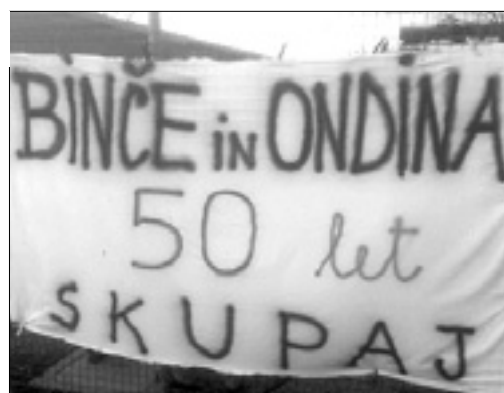 BINČE in ONDINA
50 let
SKUPAJ